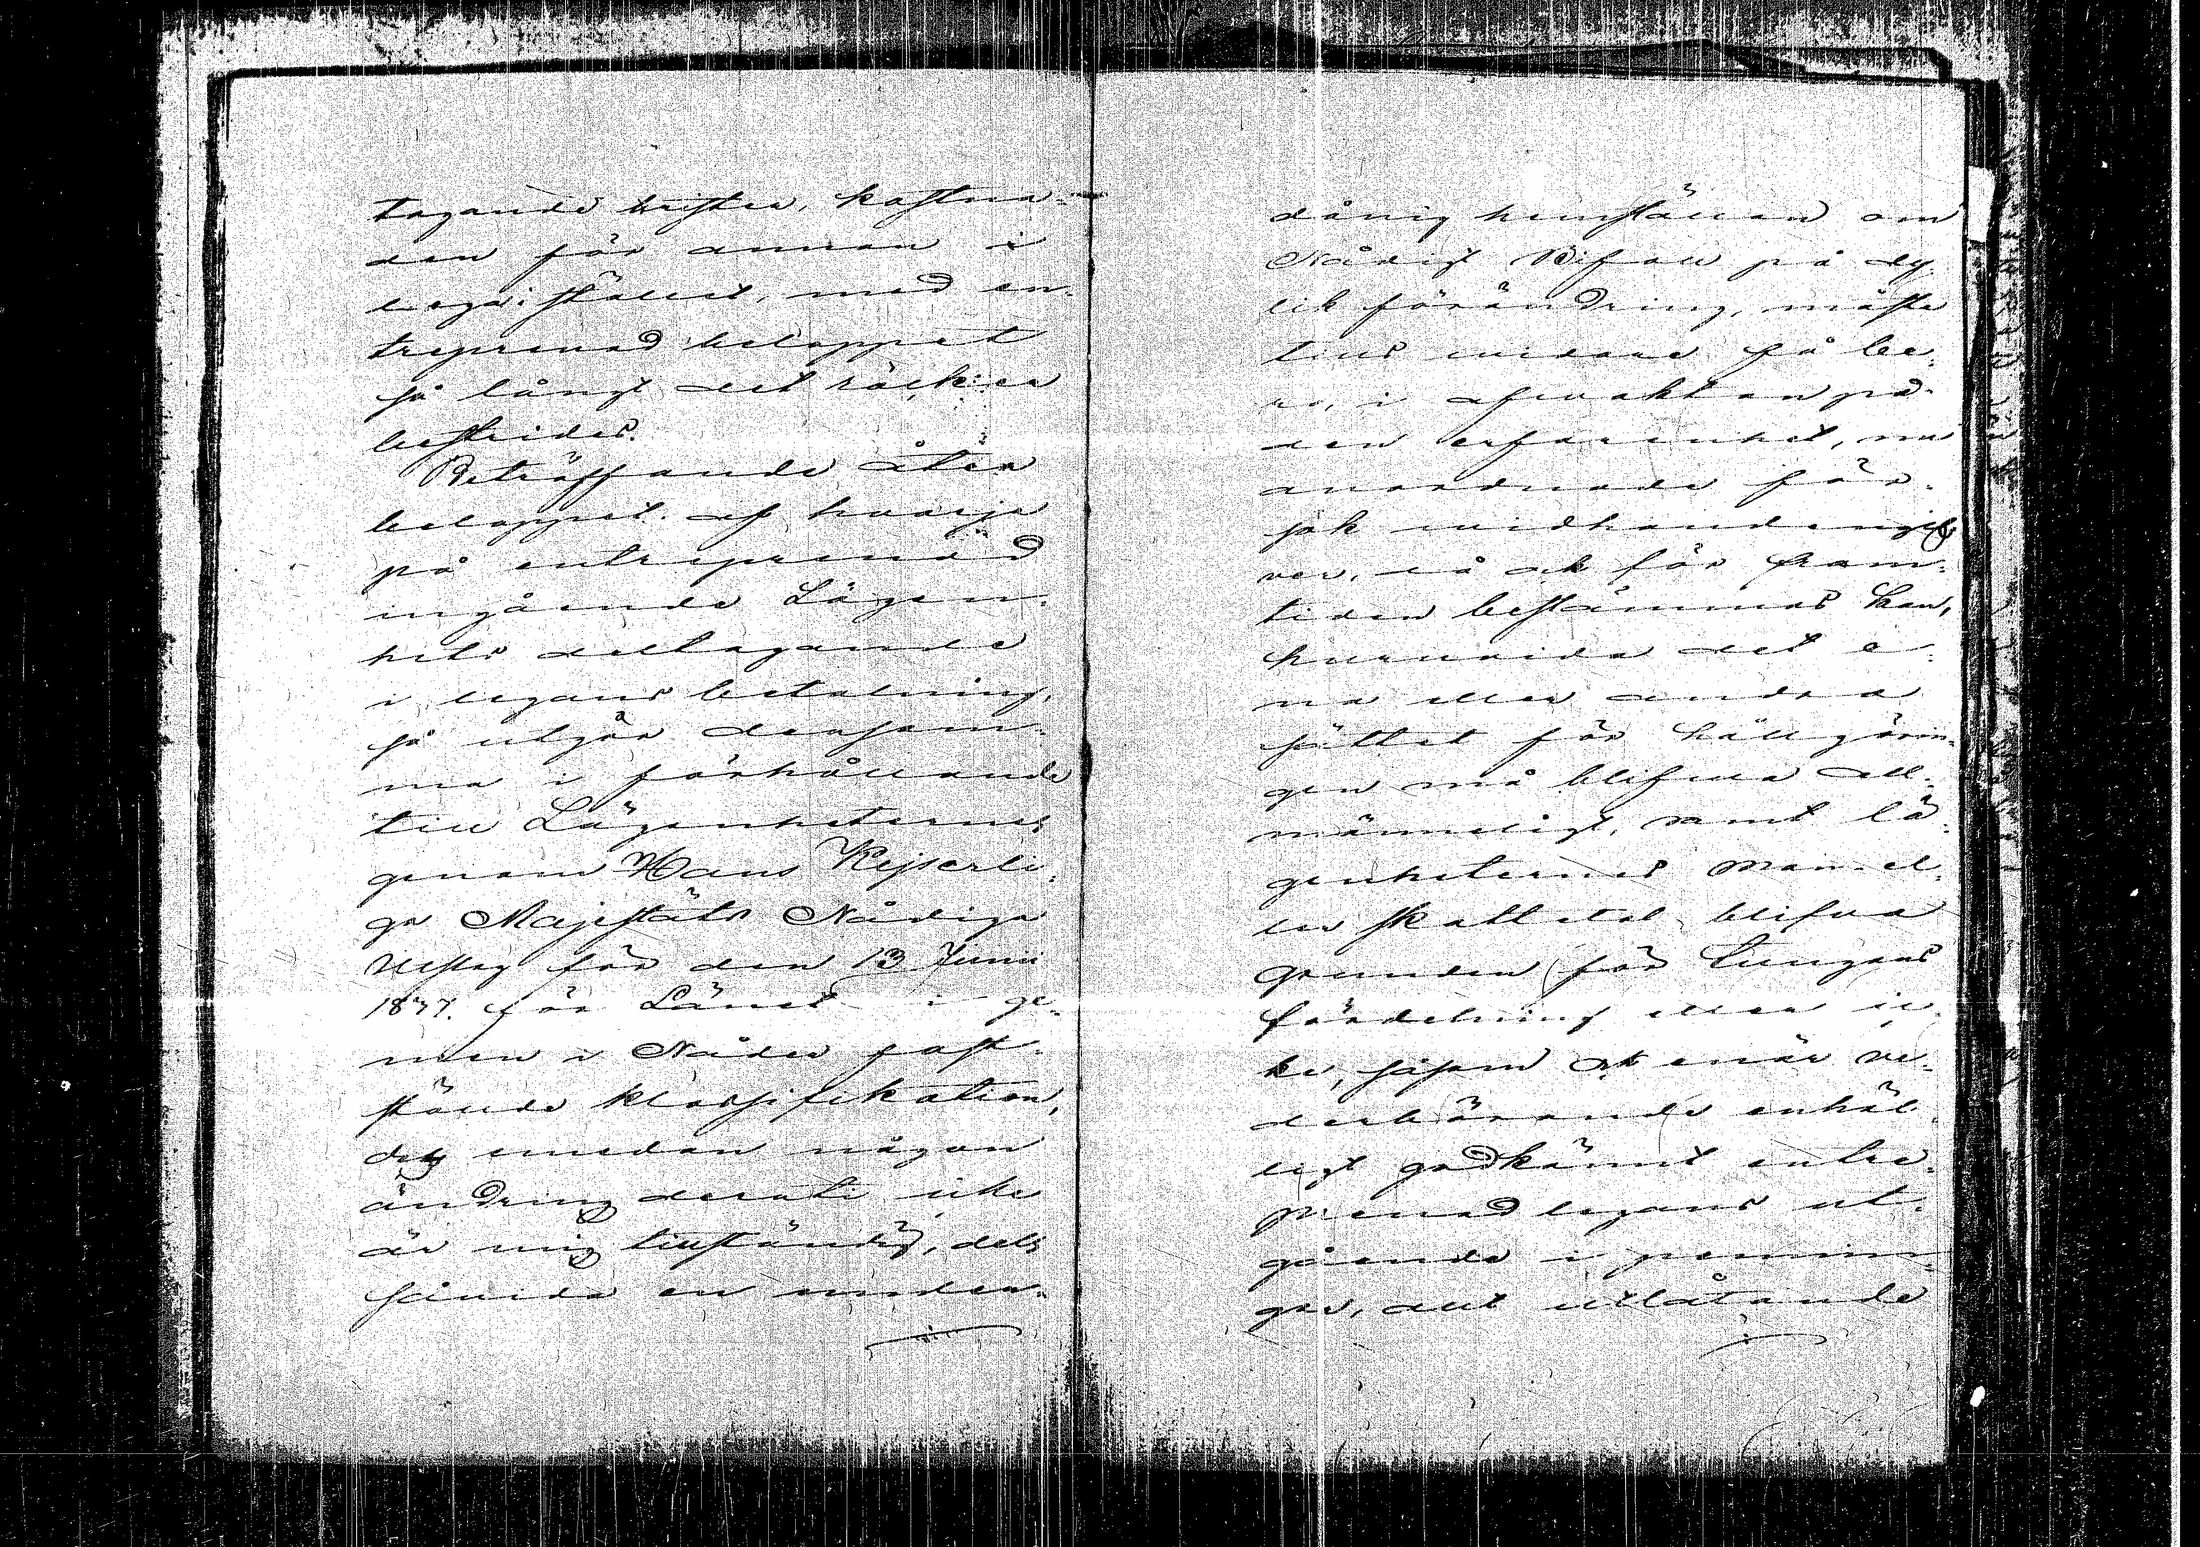 tagande brister, kostna-
den för annan i
lega i stället, med en-
treprenad beloppet
så långt det räcker
bestrides.
Beträffande åter
beloppet af hvarje
på entreprenad
ingående Lägen-
hets deltagande
i legans betalning,
så utgör densam-
ma i förhållande
till Lägenheternes
genom Hans Kejserli-
ga Majestäts Nådiga
Utslag för den 13 Junii
1837. för Länet i ge-
men i Nåder fast-
stälde klassifikation,
dels emedan någon
ändring deruti icke
är mig tillständig, dels
såvida en under-
dånig hemställan om
Nådigt Bifall på dy-
lik förändring, måste
tills vidare få be-
ro, i afvaktan på
den erfarenhet, nu
anordnade för-
sök vidhandengif-
ver, då ock för fram-
tiden bestämmas kan,
huruvida det e-
na eller andra
sättet för hållgörin-
gen må blifva all-
männeligt, samt lä-
genheternes mantal
en skattetal blifva
grunden för tungans
fördelning eller ic-
ke, såsom ock enär ve-
derbörande enhäl-
ligt godkännt entre-
prenad legans ut-
gående i pennin-
gar, det utlåtande